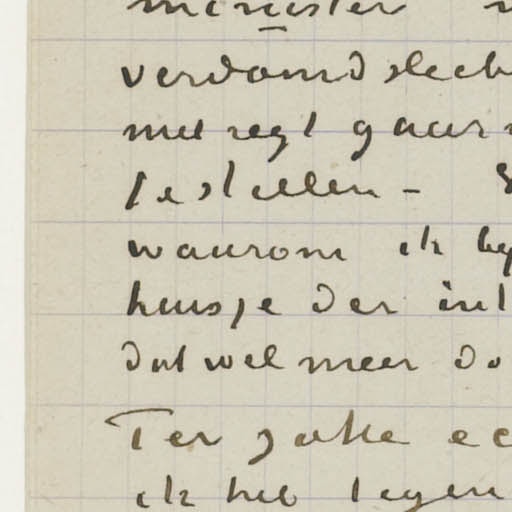 minister
verdomd slech
met regt gaar
te stellen –
waarom ik by
huisje der int
dat wel meer do
Ter zake ec
ik heb tegen